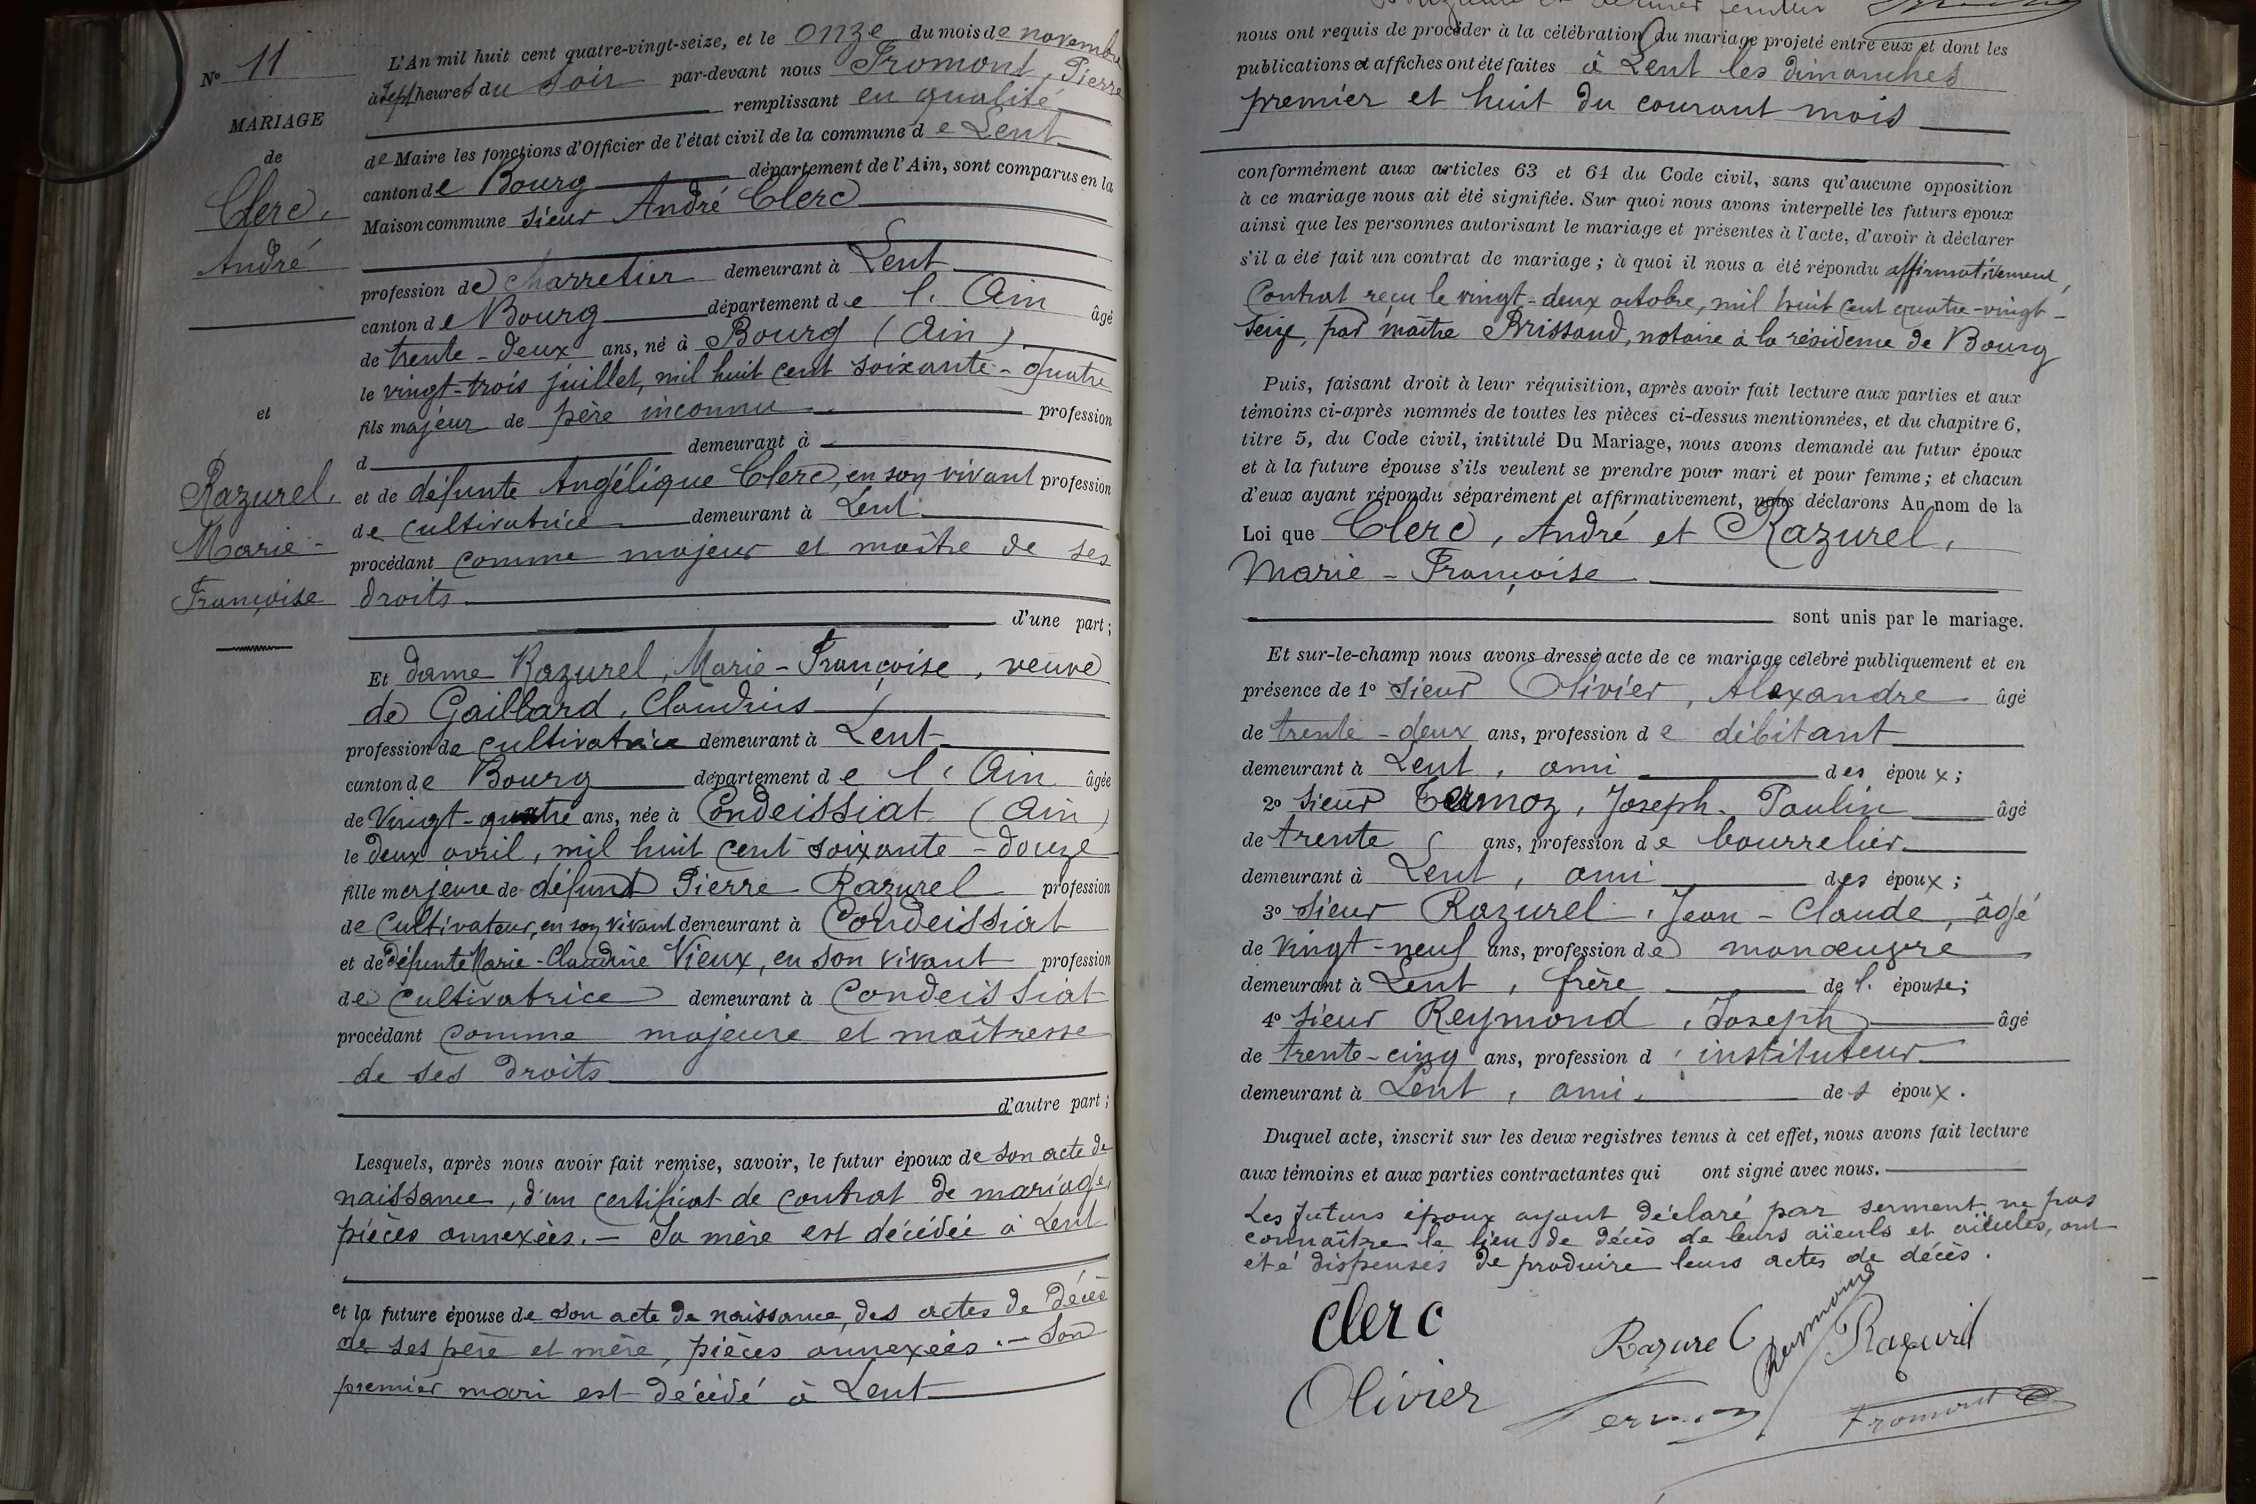 N° 11
MARIAGE
de
Clerc,
André
et
Razurel,
Marie-
Françoise
L'An mil huit cent quatre-vingt-seize, et le onze du mois de novembre
à sept heures du soir par-devant nous Fromont, Pierre
remplissant en qualité
de Maire les fonctions d'Officier de l'état civil de la commune de Lent
canton de Bourg département de l'Ain, sont comparus en la
Maison commune sieur André Clerc
profession de charretier demeurant à Lent
canton de Bourg département de l'Ain âgé
de trente-deux ans, né à Bourg (Ain)
le vingt-trois juillet, mil huit cent soixante-quatre
fils majeur de père inconnu profession
d demeurant à
et de défunte Angélique Clerc, en son vivant profession
de cultivatrice demeurant à Lent
procédant comme majeur et maître de ses
droits
d'une part;
Et dame Razurel, Marie-Françoise, veuve
de Gaillard, Claudius
profession de cultivatrice demeurant à Lent
canton de Bourg département de l'Ain âgée
de vingt-quatre ans, née à Condeissiat (Ain)
le deux avril, mil huit cent soixante-douze
fille majeure de défunt Pierre Razurel profession
de cultivateur, en son vivant demeurant à Condeissiat
et de défunte Marie-Claudine Vieux, en son vivant profession
de cultivatrice demeurant à Condeissiat
procédant comme majeure et maîtresse
de ses droits
d'autre part;
Lesquels, après nous avoir fait remise, savoir, le futur époux de son acte de
naissance, d'un certificat de contrat de mariage,
pièces annexées. — Sa mère est décédée à Lent
et la future épouse de son acte de naissance, des actes de décès
de ses père et mère, pièces annexées. — Son
premier mari est décédé à Lent
nous ont requis de procéder à la célébration du mariage projeté entre eux et dont les
publications et affiches ont été faites à Lent les dimanches
premier et huit du courant mois
conformément aux articles 63 et 64 du Code civil, sans qu'aucune opposition
à ce mariage nous ait été signifiée. Sur quoi nous avons interpellé les futurs époux
ainsi que les personnes autorisant le mariage et présentes à l'acte, d'avoir à déclarer
s'il a été fait un contrat de mariage; à quoi il nous a été répondu affirmativement,
Contrat reçu le vingt-deux octobre, mil huit cent quatre-vingt-
seize, par maître Brissaud, notaire à la résidence de Bourg
Puis, faisant droit à leur réquisition, après avoir fait lecture aux parties et aux
témoins ci-après nommés de toutes les pièces ci-dessus mentionnées, et du chapitre 6,
titre 5, du Code civil, intitulé Du Mariage, nous avons demandé au futur époux
et à la future épouse s'ils veulent se prendre pour mari et pour femme; et chacun
d'eux ayant répondu séparément et affirmativement, nous déclarons Au nom de la
Loi que Clerc, André et Razurel,
Marie-Françoise
sont unis par le mariage.
Et sur-le-champ nous avons dressé acte de ce mariage célébré publiquement et en
présence de 1° sieur Olivier, Alexandre âgé
de trente-deux ans, profession de débitant
demeurant à Lent, ami des époux;
2° sieur Termoz, Joseph-Paulin âgé
de trente ans, profession de bourrelier
demeurant à Lent, ami des époux;
3° sieur Razurel, Jean-Claude, âgé
de vingt-neuf ans, profession de manœuvre
demeurant à Lent, frère de l'épouse;
4° sieur Reymond, Joseph âgé
de trente-cinq ans, profession d'instituteur
demeurant à Lent, ami des époux.
Duquel acte, inscrit sur les deux registres tenus à cet effet, nous avons fait lecture
aux témoins et aux parties contractantes qui ont signé avec nous.
Les futurs époux ayant déclaré par serment ne pas
connaître le lieu de décès de leurs aïeuls et aïeules, ont
été dispensés de produire leurs actes de décès.
Clerc
Razurel Reymond Razurel
Olivier Termoz Fromont